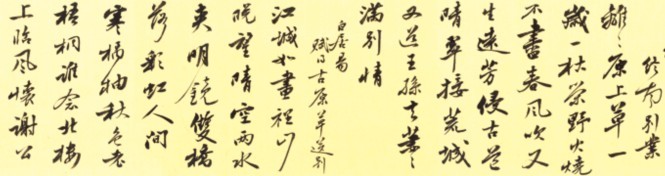 终南别業
離〻原上草一
歲一枯榮野火燒
不盡春風吹又
生遠芳侵古道
晴翠接荒城
又送王孫去萋〻
滿別情
白居易
賦得古原草送別
江城如畫裡山
晚望晴空兩水
夾明鏡雙橋
落彩虹人間
寒橘柚秋色老
梧桐誰念北樓
上臨風懷謝公